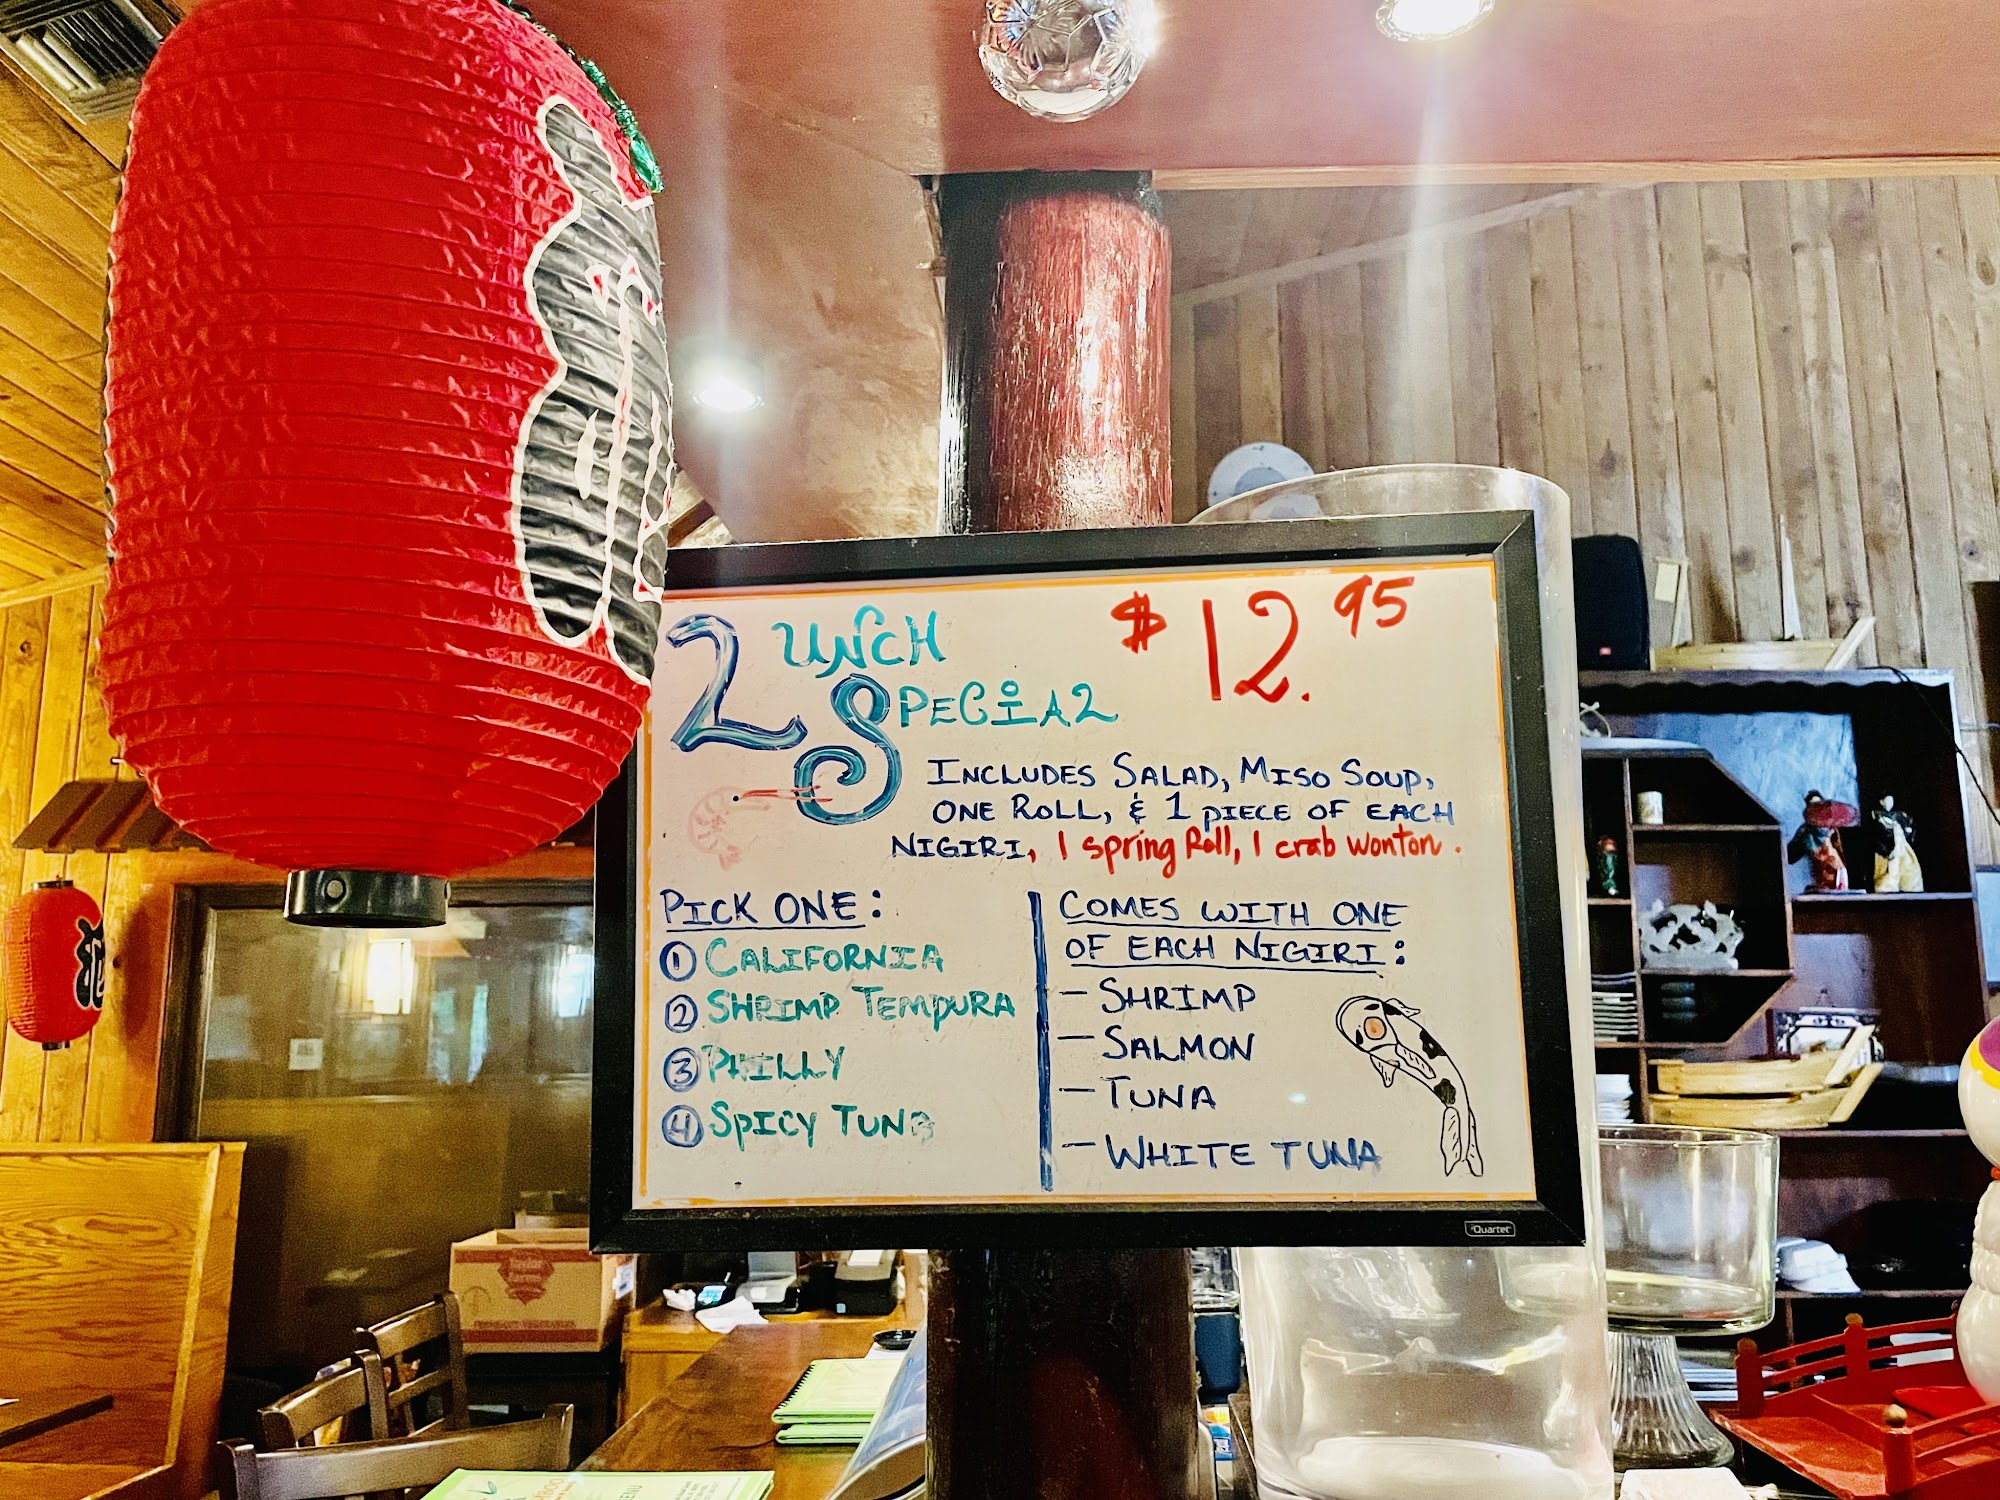 LUNCH
SPECIAL
$12.95
INCLUDES SALAD, MISO SOUP,
ONE ROLL, & 1 PIECE OF EACH
NIGIRI, 1 spring Roll, 1 crab wonton.
PICK ONE:
① CALIFORNIA
② SHRIMP TEMPURA
③ PHILLY
④ SPICY TUNA
COMES WITH ONE
OF EACH NIGIRI:
- SHRIMP
- SALMON
- TUNA
- WHITE TUNA
Quartet